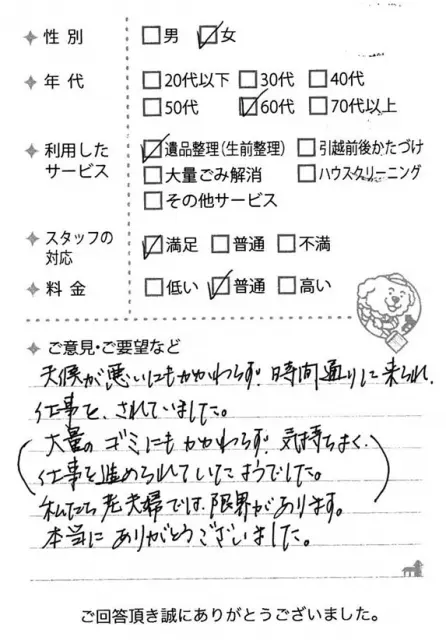 性別 □男 ☑女
年代 □20代以下 □30代 □40代
□50代 ☑60代 □70代以上
利用したサービス ☑遺品整理(生前整理) □引越前後かたづけ
□大量ごみ解消 □ハウスクリーニング
□その他サービス
スタッフの対応 ☑満足 □普通 □不満
料金 □低い ☑普通 □高い
ご意見・ご要望など
天候が悪いにもかかわらず、時間通りに来られ、
仕事を、されていました。
(大量のゴミにもかかわらず、気持ちよく、
仕事を進められていたようでした。)
私たち老夫婦では、限界があります。
本当にありがとうございました。
ご回答頂き誠にありがとうございました。